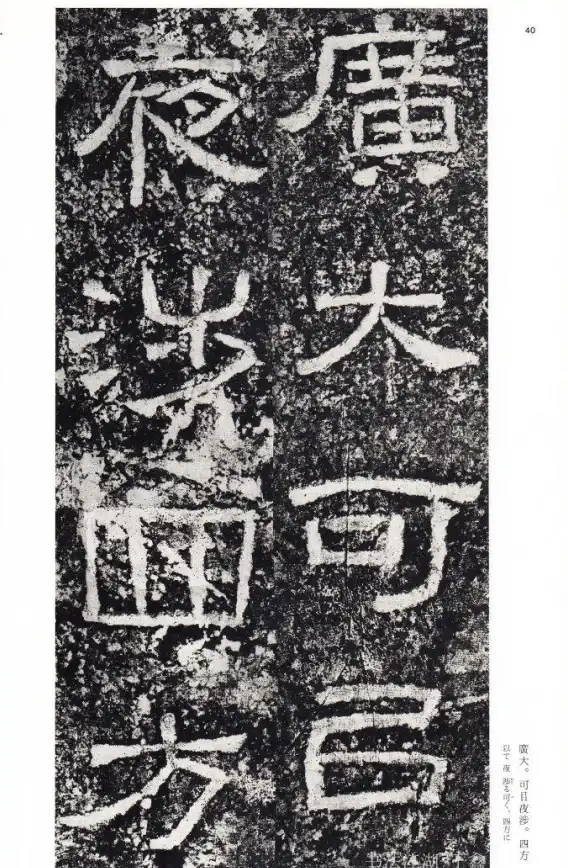 40
廣大可㠯
夜涉四方
廣大。可㠯夜涉。四方
以て夜渉る可く、四方に